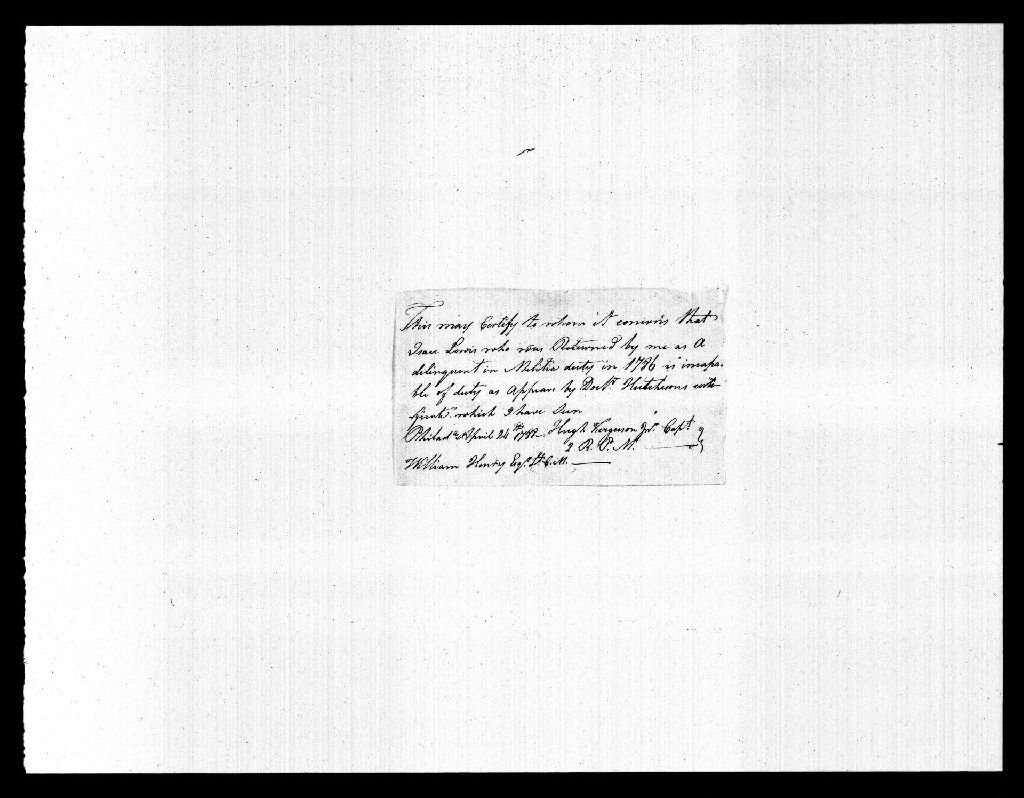 This may Certify to whom it concerns that
Isaac Lewis who was Returned by me as A
delinquent in Militia duty in 1786 is incapa,
ble of duty as Appears by Doctr. Hutchisons certi
ficate which I have Seen
Philada. April 24th Hugh Ferguson Jnr. Capt.
2 R. P. M.
William Henry Esqr. Lt. C. M.